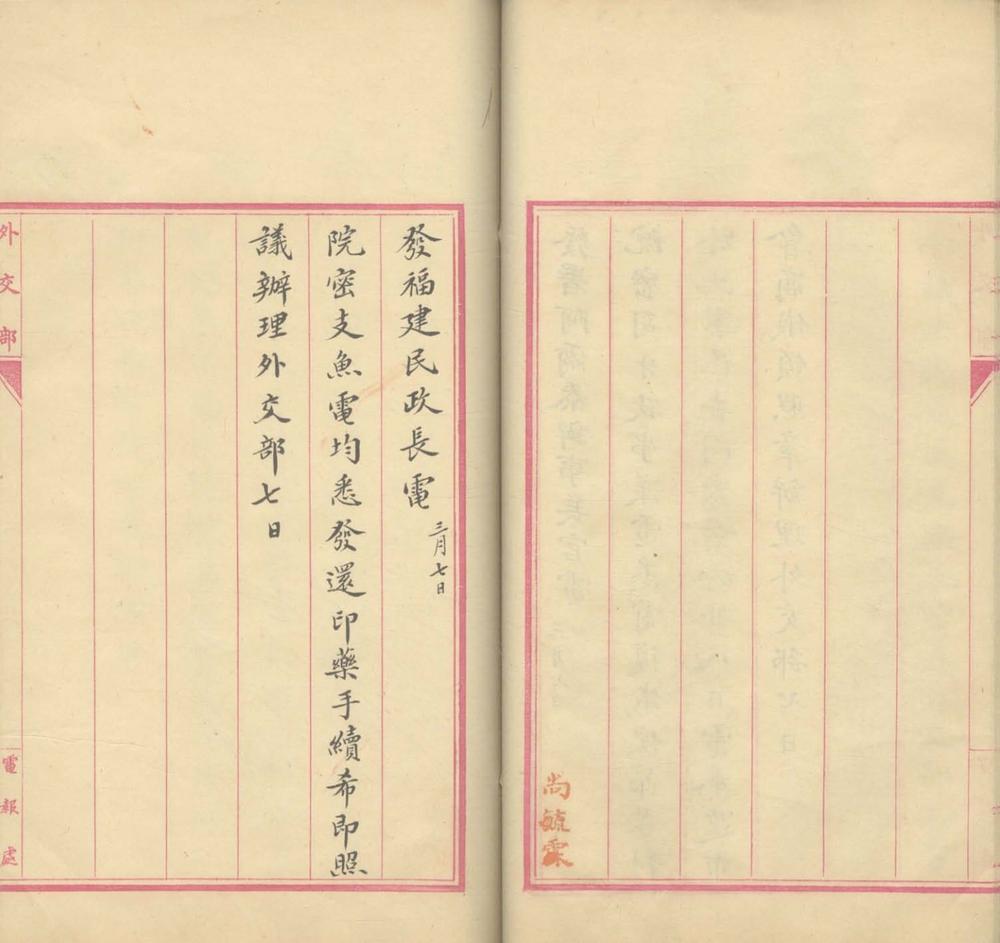 尚毓霖
發福建民政長電三月七日
院密支魚電均悉發還印藥手續希即照
議辦理外交部七日
外交部
電報處